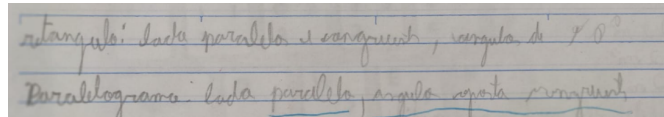 retangulo: lado paralelo e congruent, angulo di 90°
Paralelograma: lado paralelo, angulo oposto congruent